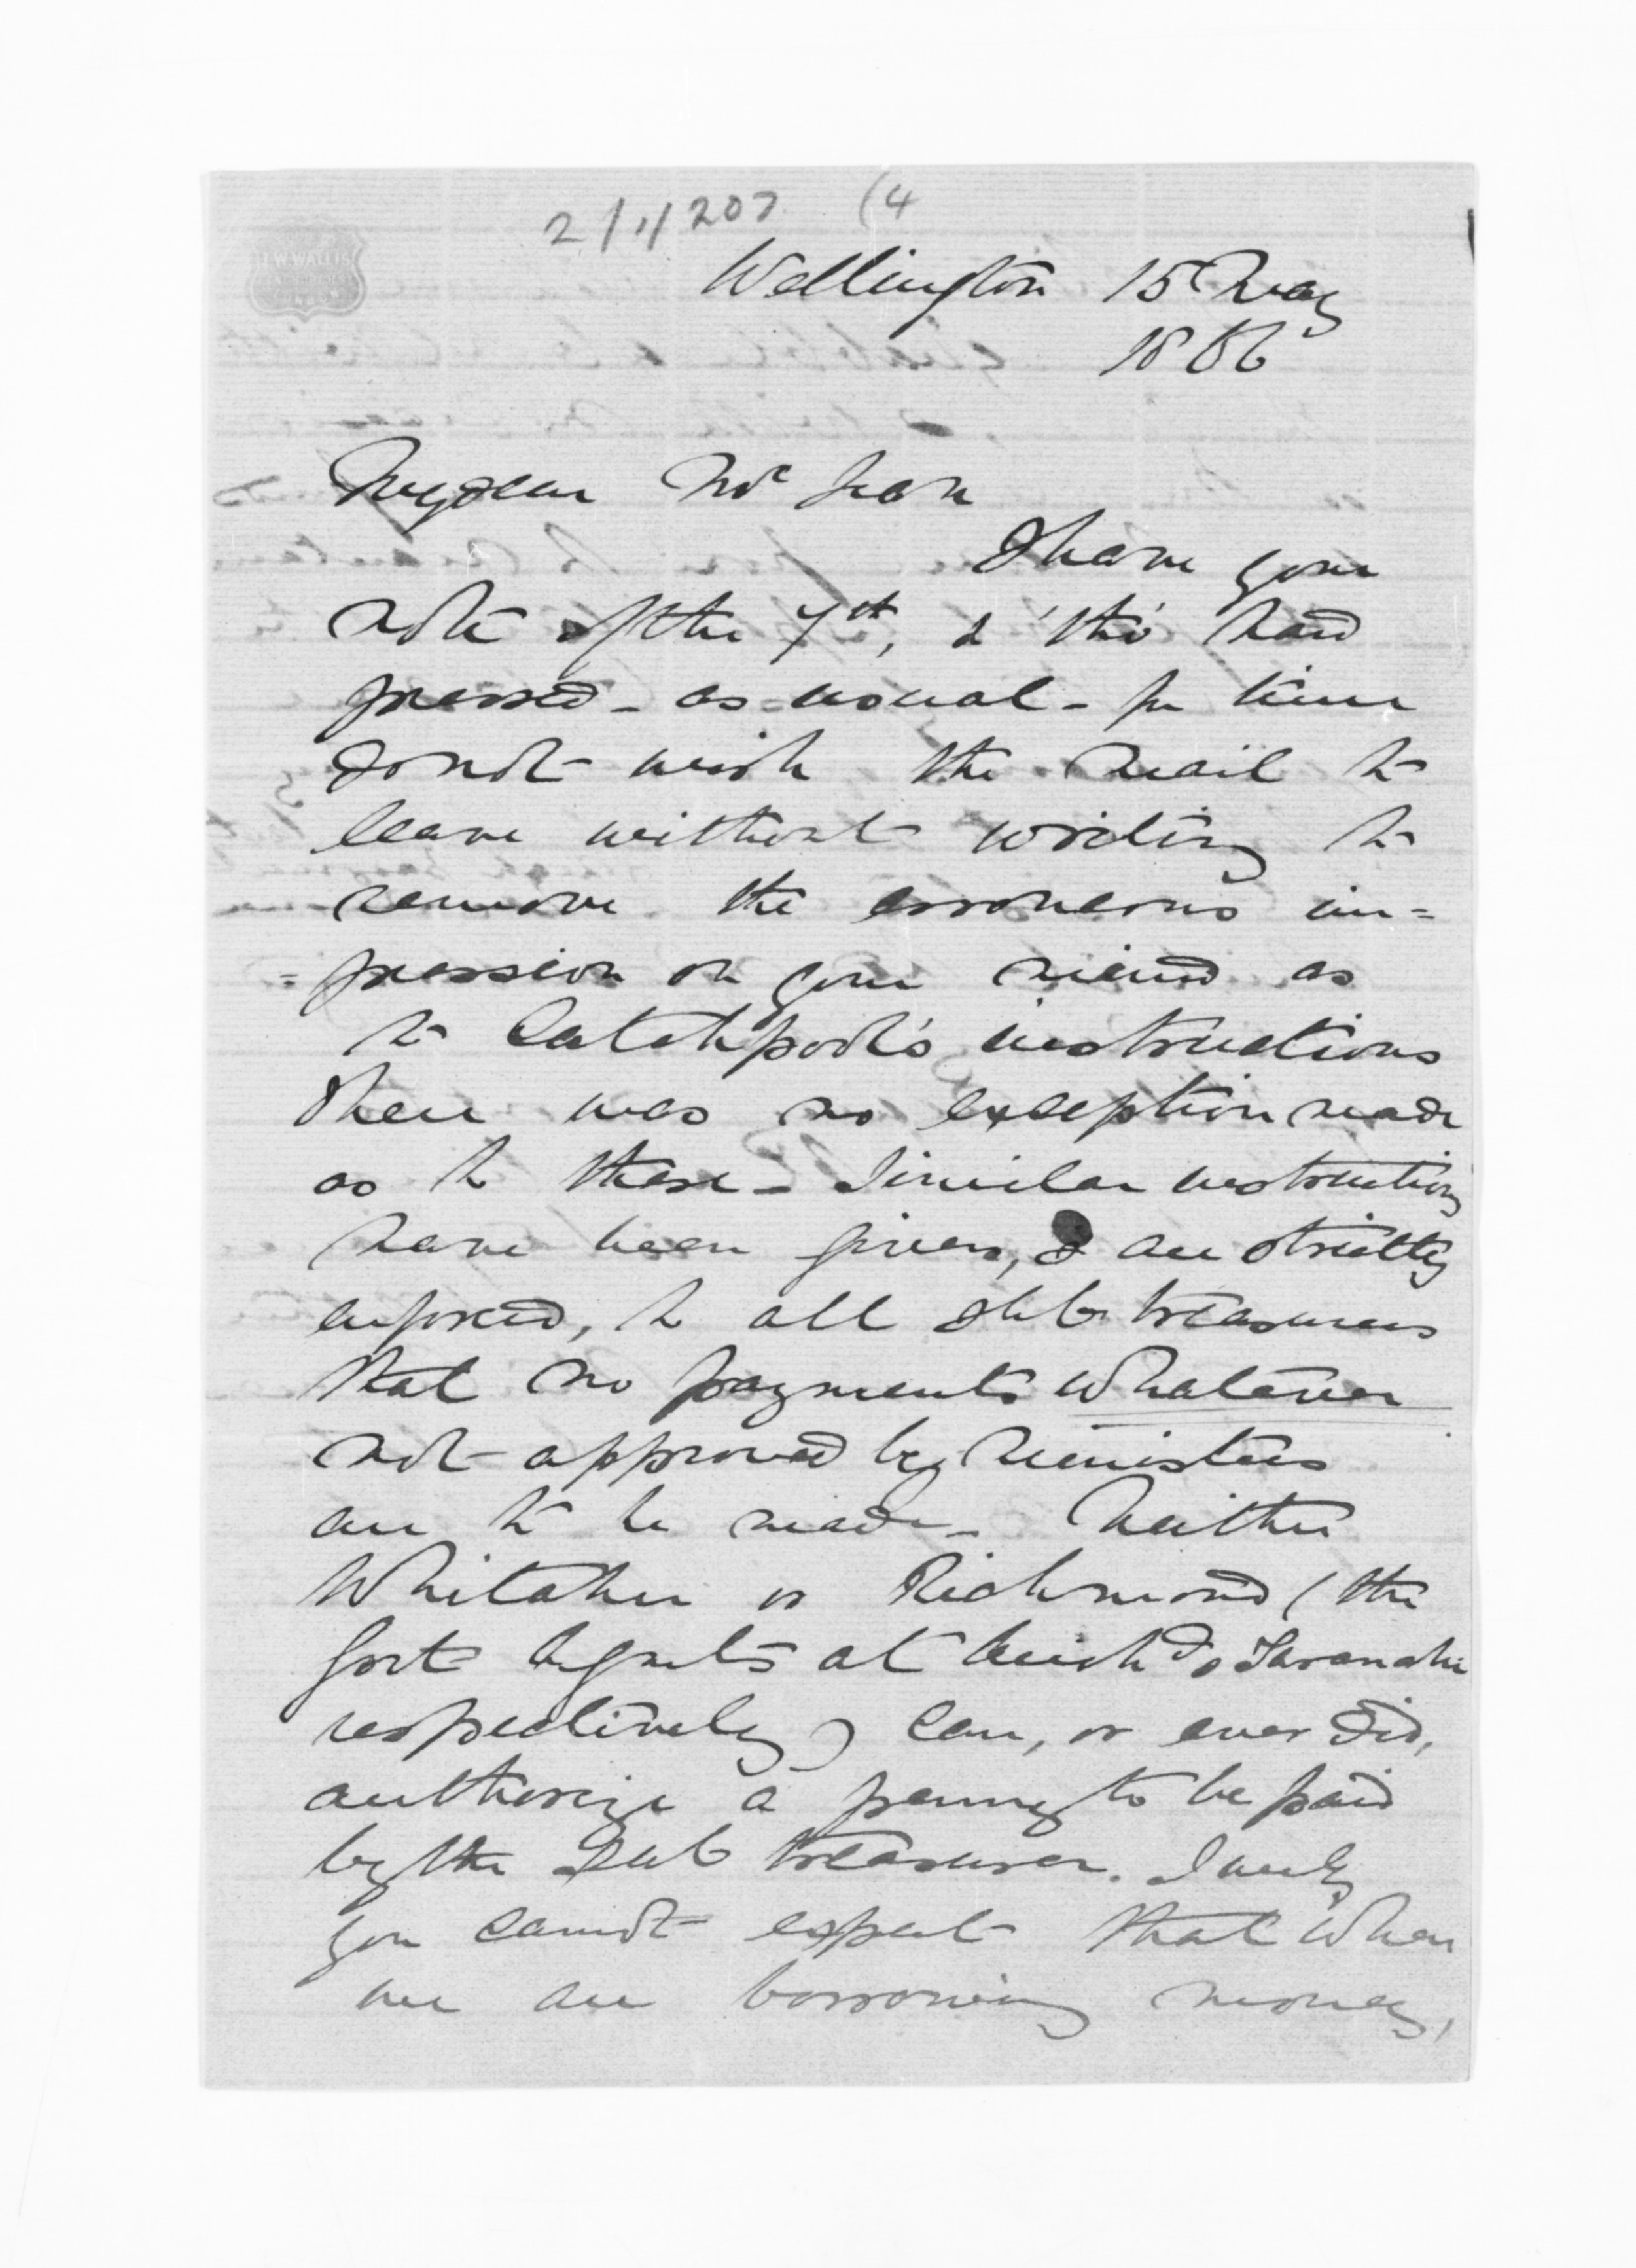 2/1/207 (4
W WALLIS
Wellington 15 May
1866
My dear McLean
I have your
note of the 7th, & 'tho' hard
pressed - as usual - for time
do not wish the mail to
leave without writing to
remove the erroneous im=
=pression on your mind as
to Catchpool's instructions
There was no exception made
as to these - Similar instructions
have been given, & are strictly
enforced, to all Sub treasurers
that no payments whatever
not approved by Ministers
are to be made - Neither
Whitaker or Richmond (the
Govt Agents at Auckd & Taranaki
respectively) can, or ever did,
authorize a penny to be paid
by the Sub treasurer. Surely
you cannot expect that when
we are borrowing money,